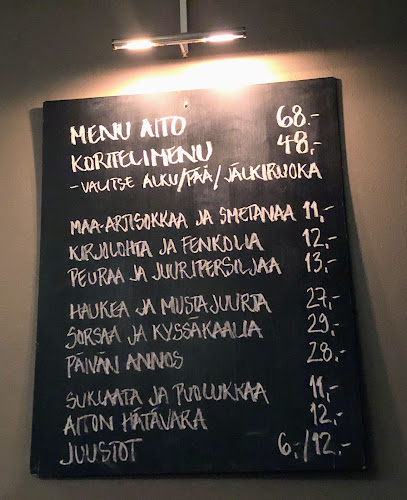 MENU AITO 68.-
KORTTELIMENU 48,-
-VALITSE ALKU/PÄÄ/JÄLKIRUOKA
MAA-ARTISOKKAA JA SMETANAA 11,-
KIRJOLOHTA JA FENKOLIA 12,-
PEURAA JA JUURIPERSILJAA 13,-
HAUKEA JA MUSTAJUURTA 27,-
SORSAA JA KYSSÄKAALIA 29,-
PÄIVÄN ANNOS 28,-
SUKLAATA JA PUOLUKKAA 11,-
AITON HÄTÄVARA 12,-
JUUSTOT 6,-/12,-